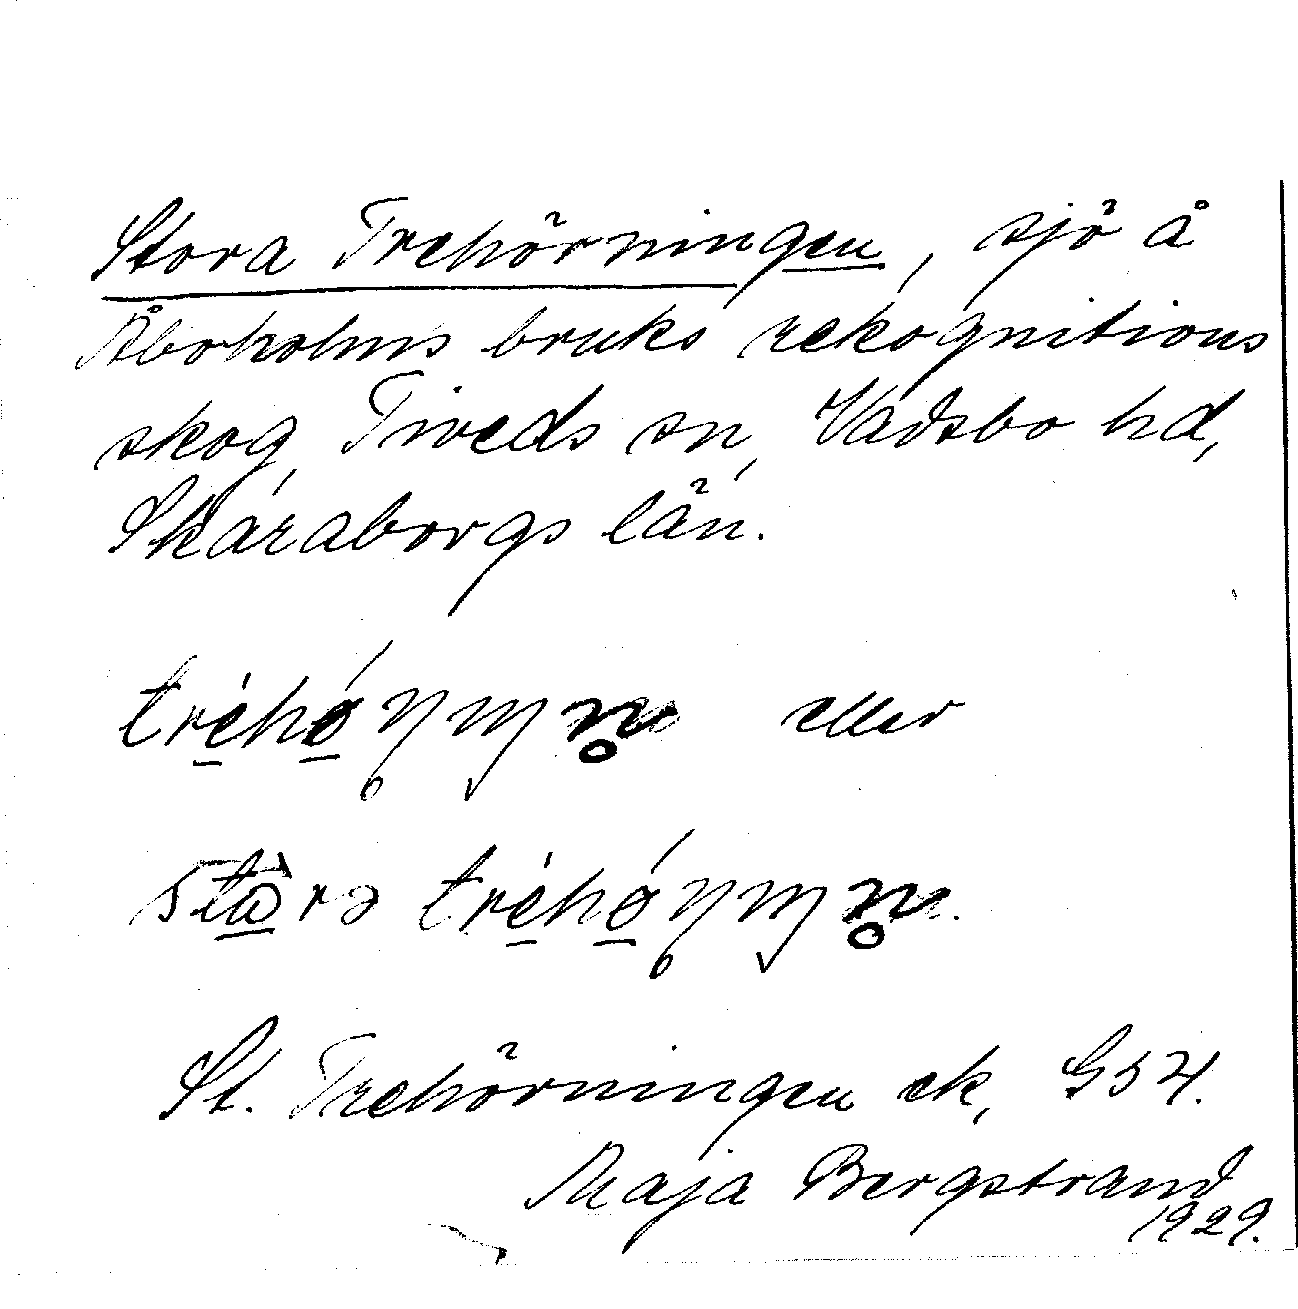 Stora Trehörningen, sjö å
Åboholms bruks rekognitions
skog, Tiveds sn, Vadsbo hd,
Skaraborgs län.
eller
St. Trehörningen ek, G54.
Maja Bergstrand
1929.